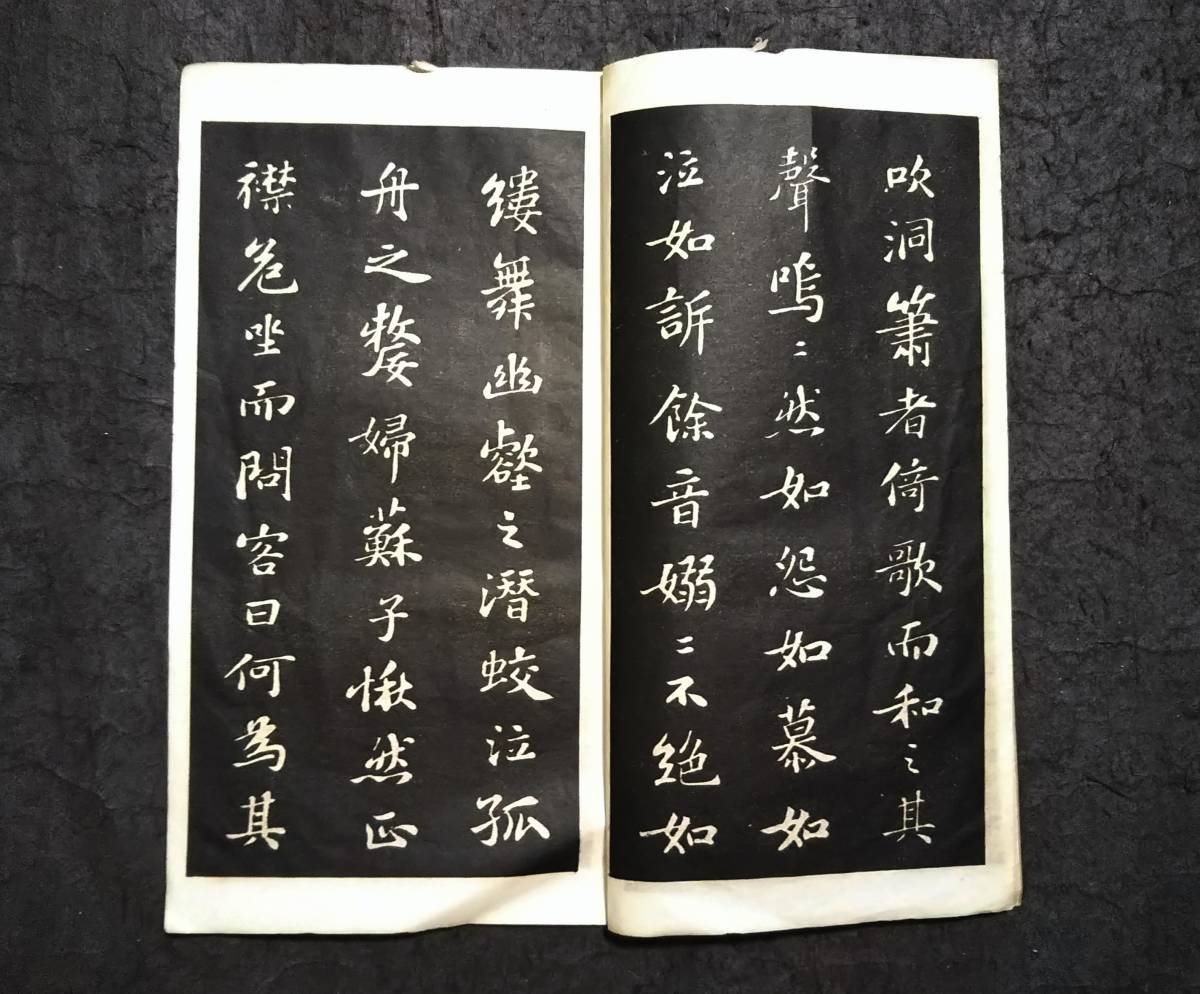 吹洞簫者倚歌而和之其
聲嗚〻然如怨如慕如
泣如訴餘音嫋〻不絶如
縷舞幽壑之潛蛟泣孤
舟之嫠婦蘇子愀然正
襟危坐而問客曰何為其